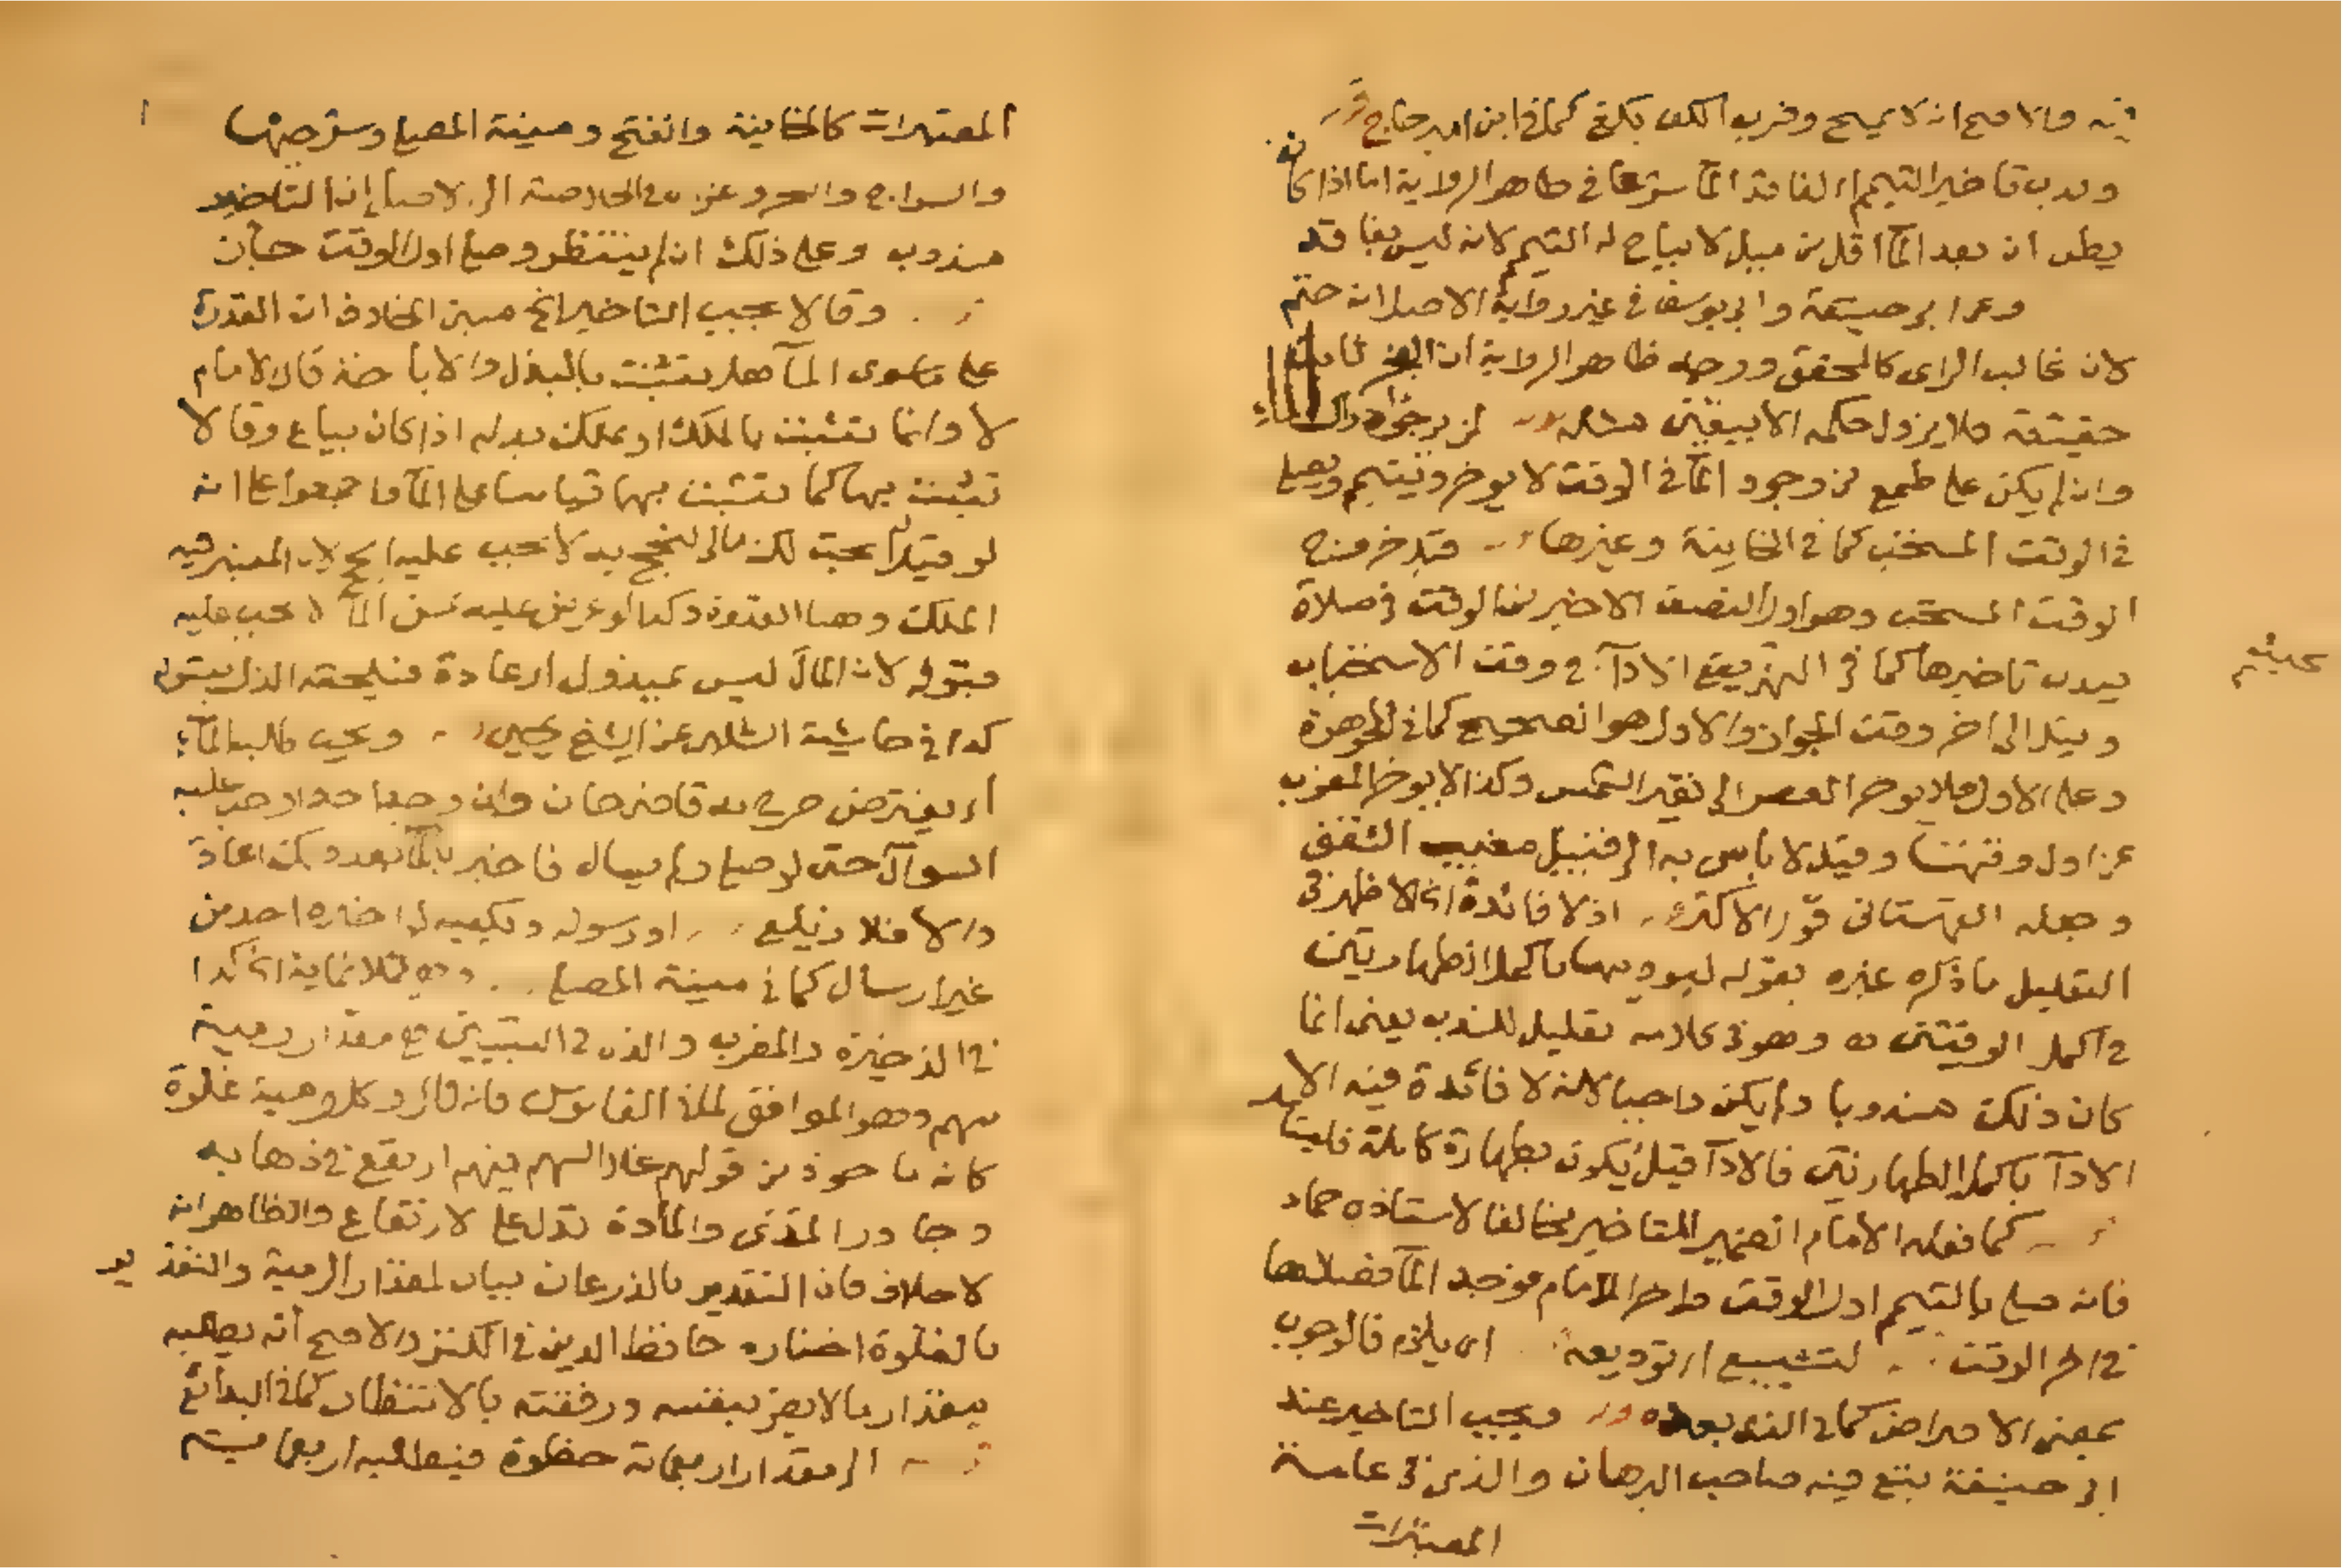 فيه والاصح انه لا يصح وضرب الكف يكفي كما في ابن امير حاج
وندب تاخير التيمم الفاقد الماء شرعا في ظاهر الرواية اما اذا كان
يظن ان بعد الماء اقل من ميل لا يباح له التيمم لانه ليس بفاقد
وعن ابي حنيفة وابي يوسف في غير رواية الاصول انه حتم
لان غالب الراى كالمحقق ووجه ظاهر الرواية ان العجز ثابت
حقيقة فلا يزول حكمه الا بيقين مثله لمن يرجو ادراك الماء
وان لم يكن على طمع من وجود الماء في الوقت لا يوخر ويتيمم ويصلي
في الوقت المستحب كما في الخانية وغيرها قبل خروج
الوقت المستحب وهو اول النصف الاخير من الوقت في صلاة
يندب تاخيرها كما في النهر يقع الاداء في وقت الاستحباب
وقيل الى اخر وقت الجواز والاول هو الصحيح كما في الجوهرة
وعلى الاول فلا يوخر العصر الى تغير الشمس وكذا لا يوخر المغرب
عن اول وقتها وقيل لا باس به الى قبيل مغيب الشفق
وجعله القهستاني قول الاكثر اذ لا فائدة الاظهر في
التعليل ما ذكره غيره بقوله ليوديها باكمل الطهارتين
في اكمل الوقتين وهو في كلامه تعليل للندب يعني انما
كان ذلك مندوبا ولم يكن واجبا لانه لا فائدة فيه الا
الاداء باكمل الطهارتين فالاداء قبل يكون بطهارة كاملة
كما فعله الامام التاخير مخالفا لاستاذه حماد
فانه صلى بالتيمم اول الوقت واخر الامام فوجد الماء فصلاها
في اخر الوقت لتشييع اى توديعه اى يلزم فالوجوب
بمعنى الافتراض كما في الذى بعده ويجب التاخير عند
ابى حنيفة يتبع فيه صاحب البرهان والذى في عامة
المعتبرات
المعتبرات كالخانية والفتح ومنية المصلي وشرحها
والسراج والبحر الى الاصل ان التاخير
مندوب وعلى ذلك ان لم ينتظر وصلى اول الوقت جاز
وقالا يجب التاخير الخ مبنى الخلاف ان القدرة
على ما سوى الماء هل تثبت بالبذل والاباحة قال الامام
لا وانما تثبت بالملك او بملك بدله اذا كان يباع وقالا
تثبت بها كما تثبت بها قياسا على الماء واجمعوا على انه
لو قيل ابحت لك مالي لتحج به لا يجب عليه الحج لان المعتبر فيه
الملك وهنا القدرة وكذا لو عرض عليه ثمن الماء لا يجب عليه
قبوله لان المال ليس بمبذول اى عادة فيلحقه الذل بقبوله
كذا في حاشية الشلبي عن الشيخ يحيى ويجب طلب الماء
اى يفترض صرح به قاضي خان وان وجد احدا وجب عليه
السوال حتى لو صلى ولم يسال فاخبر بالماء بعد ذلك اعاد
والا فلا زيلعي او رسوله ويكفيه لو اخبره احد من
غير ارسال كما في منية المصلي كذا
في الذخيرة والمغرب والذى في التبيين مقدار رمية
سهم وهو الموافق لما في القاموس فانه قال وكل رمية غلوة
كانه ماخوذ من قولهم غلا السهم فيهم ارتفع في ذهابه
وجاوز المدى والمادة تدل على الارتفاع والظاهر انه
لا خلاف فان التقدير بالذرعان بيان لمقدار الرمية والتقدير
بالغلوة اختاره حافظ الدين في الكنز والاصح انه يطلبه
بمقدار ما لا يضر بنفسه ورفقته بالانتظار كما في البدائع
الى مقدار اربعمائة خطوة